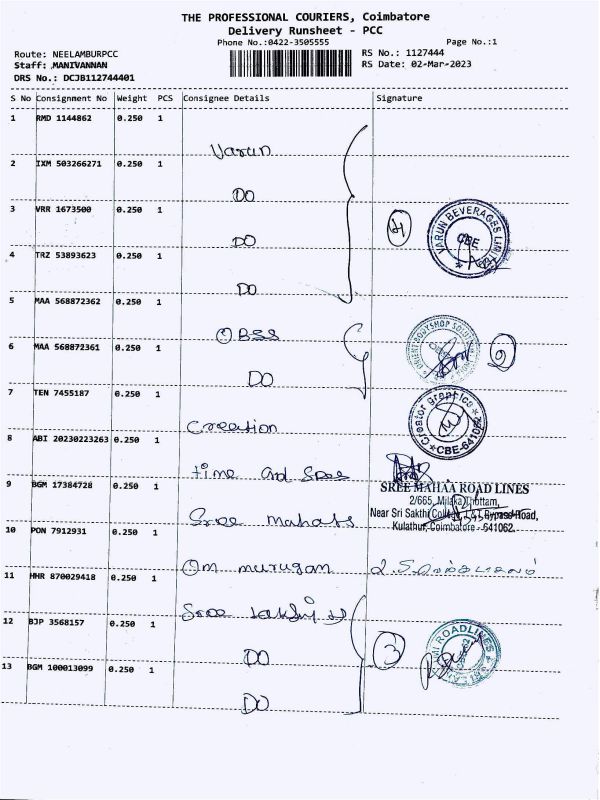 THE PROFESSIONAL COURIERS, Coimbatore
Delivery Runsheet - PCC
Phone No.:0422-3505555
Page No.:1
Route: NEELAMBURPCC
Staff: MANIVANNAN
DRS No.: DCJB112744401
RS No.: 1127444
RS Date: 02-Mar-2023
S No Consignment No Weight PCS Consignee Details Signature
1 RMD 1144862 0.250 1 Varun
2 IXM 503266271 0.250 1 DO
3 VRR 1673500 0.250 1 DO
4 TRZ 53893623 0.250 1 DO
4
VARUN BEVERAGES LIMITED
CBE
5 MAA 568872362 0.250 1 OBSS
6 MAA 568872361 0.250 1 DO
2
ORIENT BODYSHOP SOLUTIONS
7 TEN 7455187 0.250 1 Creation
Creator graphics
CBE-641062
8 ABI 20230223263 0.250 1 time and
9 BGM 17384728 0.250 1 Sree
SREE MAHAA ROAD LINES
2/665, Milaka Thottam,
Near Sri Sakthi L&T Bypass Road,
Kulathur, Coimbatore - 641062.
10 PON 7912931 0.250 1 Om murugan
11 HMR 870029418 0.250 1 Sree
12 BJP 3568157 0.250 1 DO
13 BGM 100013099 0.250 1 DO
3
ROADLINES